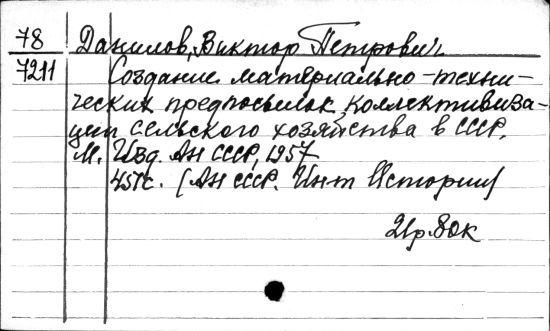 78 Данилов, Виктор Петрович
7211 Создание материально-техни-
ческих предпосылок коллективиза-
ции сельского хозяйства в СССР.
М. Изд. АН СССР, 1957
451с. (АН СССР. Ин-т Истории)
21р.80к